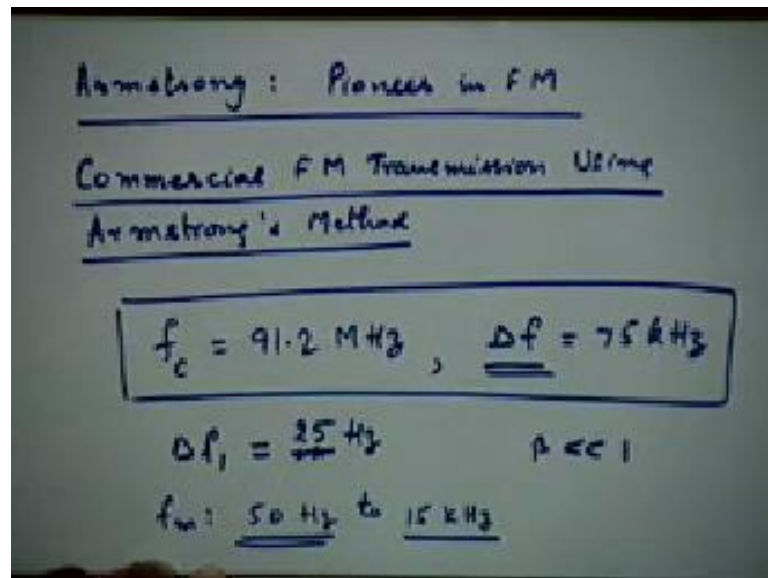 Armstrong : Pioneer in FM
Commercial FM Transmission Using
Armstrong's Method
f_c = 91.2 MHz , Δf = 75 kHz
Δf₁ = 25 Hz β << 1
f_m : 50 Hz to 15 kHz